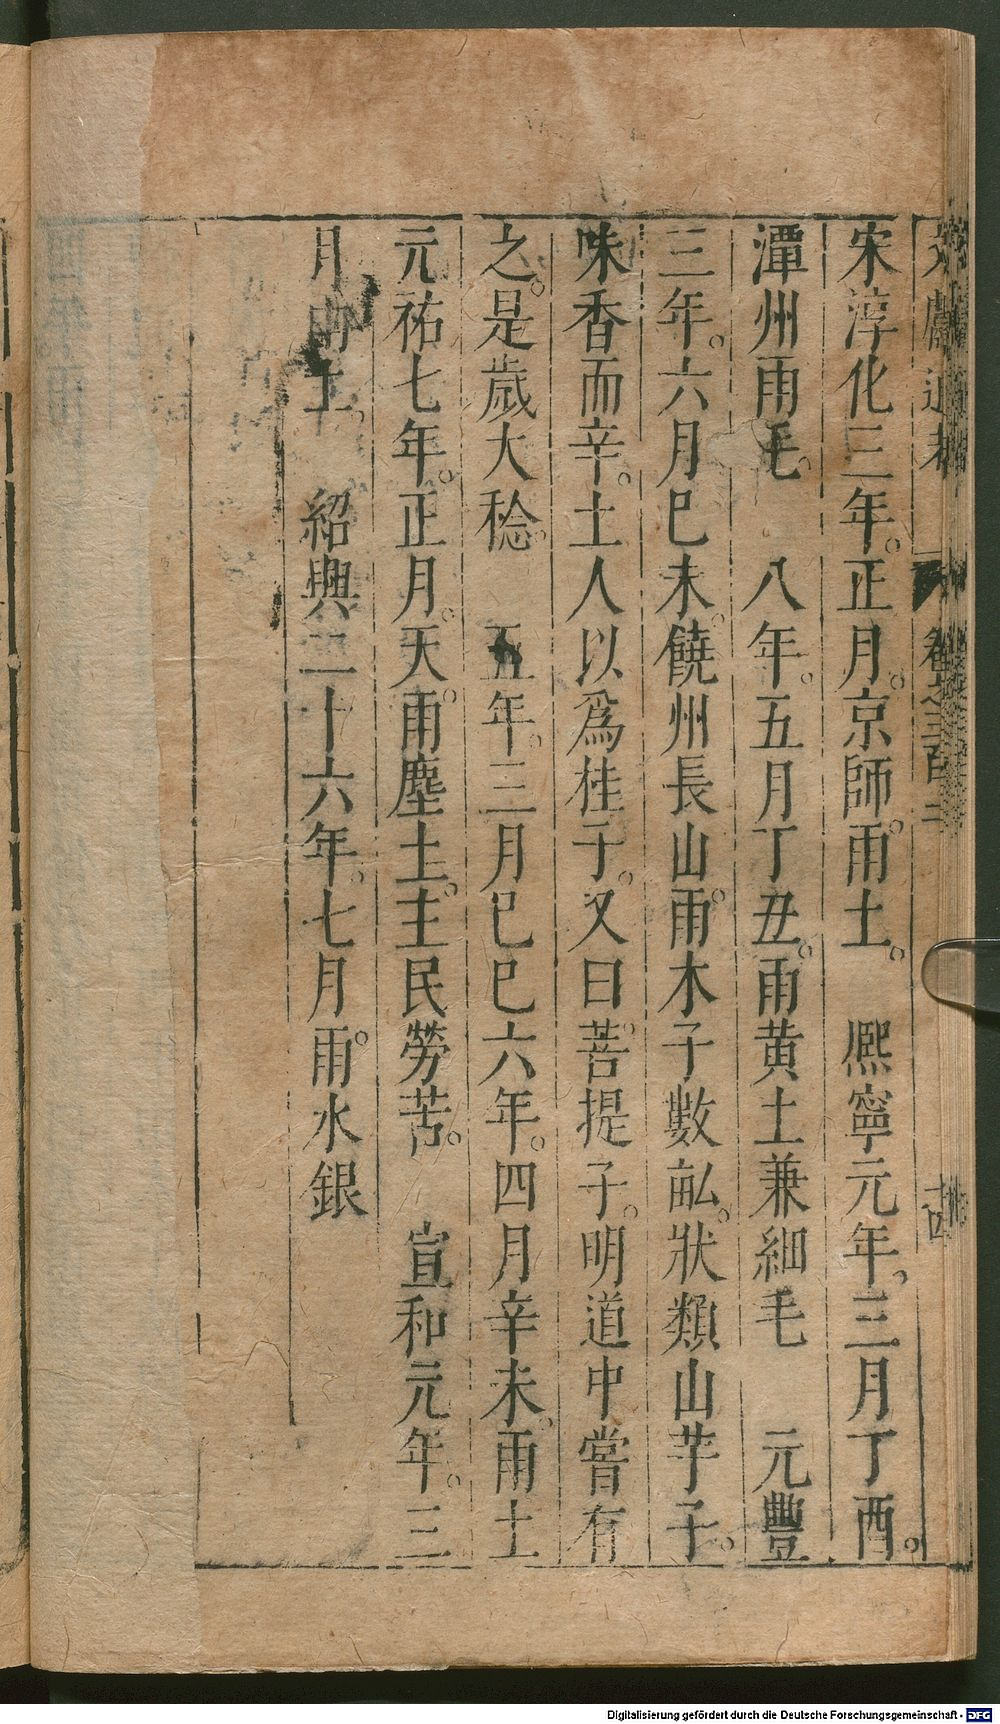 文獻通考 卷之三百二 十四
宋淳化三年。正月。京師。雨土。 熈寧元年。三月丁酉。
潭州雨毛。 八年。五月丁丑。雨黄土兼細毛 元豐
三年。六月巳未。饒州長山。雨木子數畆。狀類山芋子。
味香而辛。土人以爲桂子。又曰菩提子。明道中嘗有
之。是歲大稔。 五年。三月巳巳六年。四月辛未。雨土
元祐七年。正月。天。雨塵土。主民勞苦。 宣和元年。三
月雨土。 紹興二十六年。七月。雨水銀
Digitalisierung gefördert durch die Deutsche Forschungsgemeinschaft - DFG